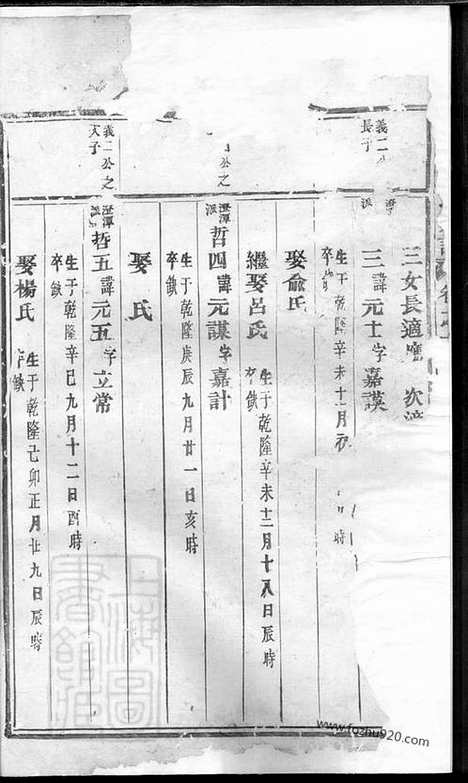 三女長適 次適
義二公
長子
澄
派
三諱元士字嘉謨
生于乾隆辛未十一月初
卒
時
娶俞氏
繼娶呂氏
生于乾隆辛未十二月十八日辰時
卒缺
公之
澄潭
派
哲四諱元謀字嘉計
生于乾隆庚辰九月廿一日亥時
卒缺
娶 氏
義二公之
次子
澄潭
派
哲五諱元五字立常
生于乾隆辛巳九月十二日酉時
卒缺
娶楊氏
生于乾隆己卯正月廿九日辰時
卒缺
上海圖
書館藏
www.fozhu920.com